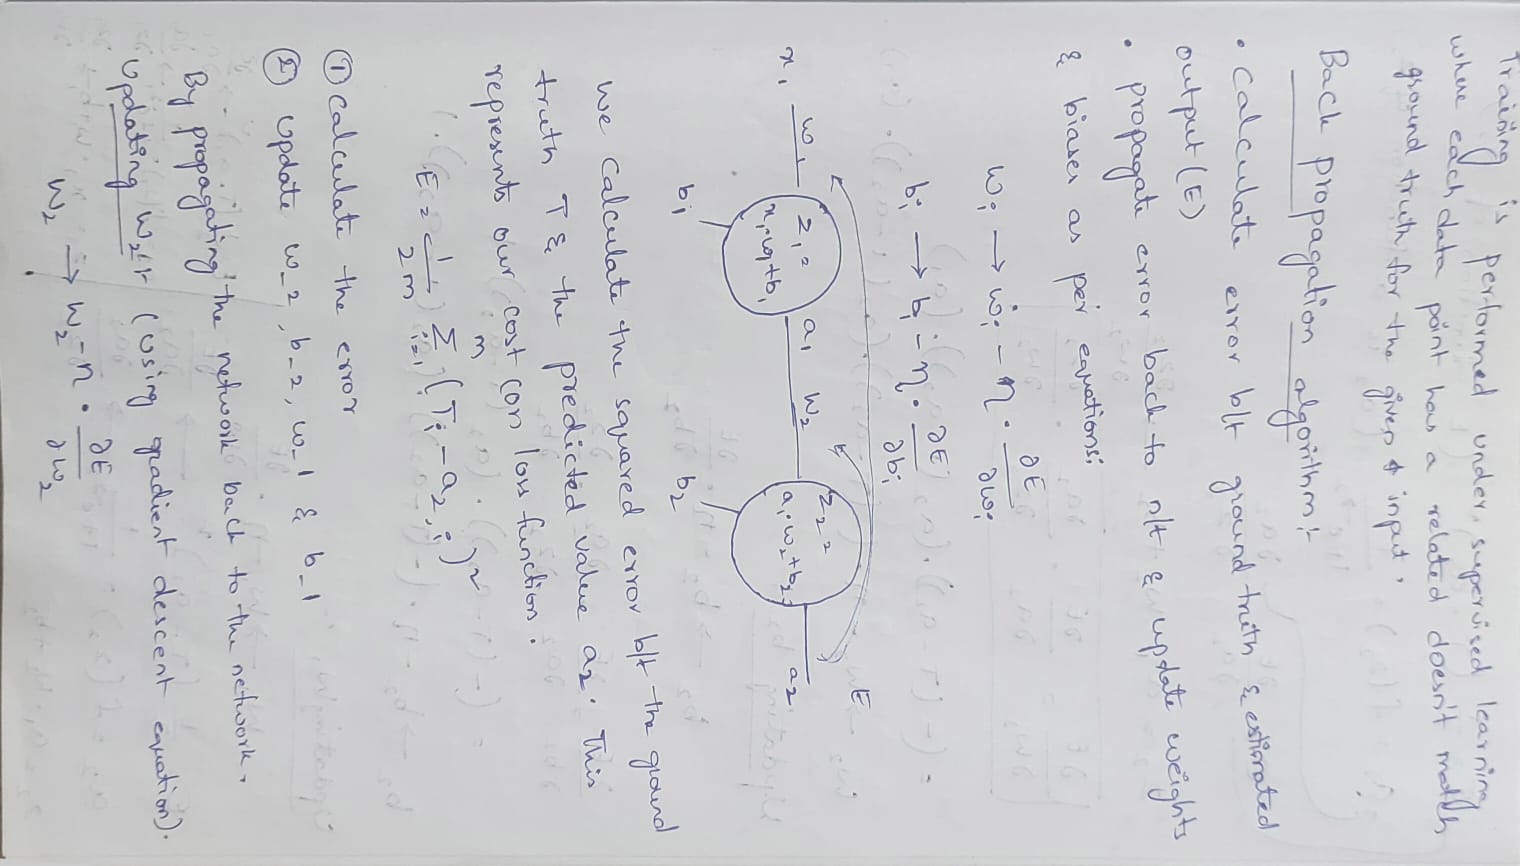 Training is performed under supervised learning
where each data point has a related doesn't match
ground truth for the given & input.
Back propagation algorithm:-
• Calculate error b/t ground truth & estimated
output (E)
• propagate error back to n/t & update weights
& biases as per equations:
wᵢ → wᵢ - η · ∂E/∂wᵢ
bᵢ → bᵢ - η · ∂E/∂bᵢ
E
x₁ w₁ z₁ = x₁·w₁+b₁ a₁ w₂ z₂ = a₁·w₂+b₂ a₂
b₁ b₂
We calculate the squared error b/t the ground
truth T & the predicted value a₂. This
represents our cost (or) loss function.
E = 1/2m Σᵢ₌₁ᵐ (Tᵢ - a₂,ᵢ)²
① Calculate the error
② Update w_2, b_2, w_1 & b_1
By propagating the network back to the network.
Updating w₂:- (using gradient descent equation).
w₂ → w₂ - η · ∂E/∂w₂